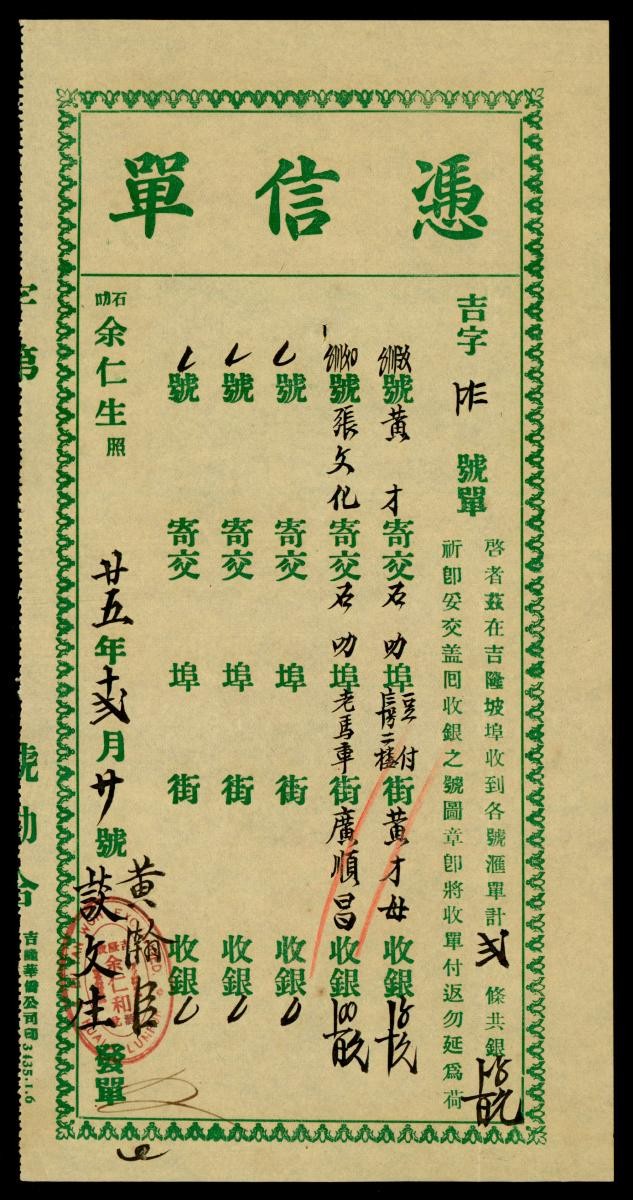 憑信單
吉字 號單
啓者茲在吉隆坡埠收到各號滙單計弍條共銀
祈即妥交盖囘收銀之號圖章即將收單付返勿延爲荷
號黃才寄交石叻埠豆付街長房二樓黃才母收銀
號張文化寄交石叻埠老馬車街廣順昌收銀
號 寄交 埠 街 收銀
號 寄交 埠 街 收銀
號 寄交 埠 街 收銀
石叻余仁生照
廿五年十弍月廿號
黃瀚臣
談文生
發單
余仁利
KUALA LUMPUR
字第
號
吉隆華僑公司印3435.1.6